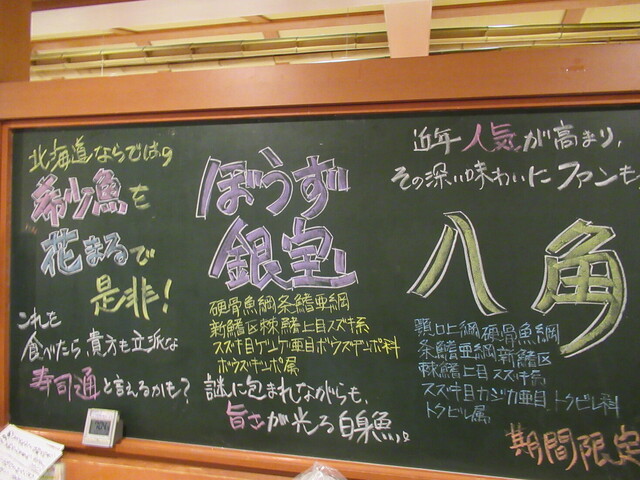 北海道ならではの
希少魚を
花まるで
是非!
これを
食べたら、貴方も立派な
寿司通と言えるかも?
ぼうず
銀宝
硬骨魚綱条鰭亜綱
新鰭区棘鰭上目スズキ系
スズキ目ゲンゲ亜目ボウズギンポ科
ボウズギンポ属
謎に包まれながらも、
旨さが光る白身魚。
近年人気が高まり、
その深い味わいにファンも
八角
顎口上綱硬骨魚綱
条鰭亜綱新鰭区
棘鰭上目スズキ系
スズキ目カジカ亜目トクビレ科
トクビレ属
期間限定